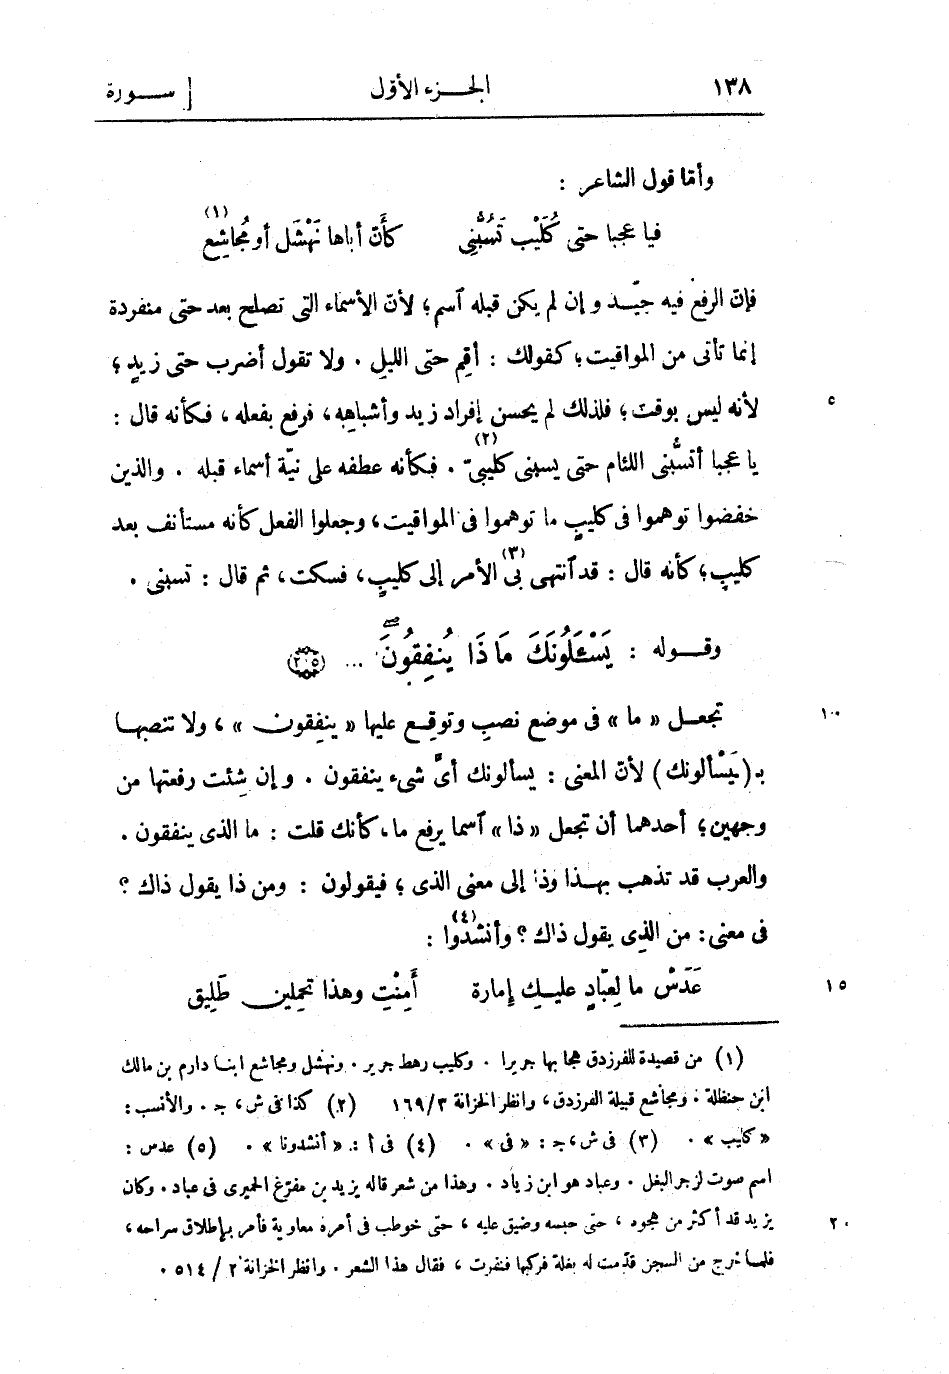 ١٣٨ الجـزء الأول [ ســورة
وأما قول الشاعر :
فيا عجبا حتى كُلَيْب تَسُبُّنِى كأَنّ أباها نَهْشَل أو مُجاشِع (١)
فإنّ الرفع فيه جيّـد وإن لم يكن قبله آسم؛ لأنّ الأسماء التى تصلح بعد حتى منفردة
إنما تأتى من المواقيت؛ كقولك : أقِم حتى الليلِ . ولا تقول أضرب حتى زيدٍ؛
٥ لأنه ليس بوقت؛ فلذلك لم يحسن إفراد زيد وأشباهِه، فرفع بفعله، فكأنه قال :
يا عجبا أتسُبُّنى اللئام حتى يسبنى كليبىّ (٢) . فكأنه عطفه على نيّة أسماء قبله . والذين
خفضوا توهموا فى كليبٍ ما توهموا فى المواقيت، وجعلوا الفعل كأنه مستأنف بعد
كليبٍ؛ كأنه قال : قد آنتهى بى (٣) الأمر إلى كليبٍ، فسكت، ثم قال : تسبنى .
وقـوله : يَسْـَٔلُونَكَ مَاذَا يُنفِقُونَۖ ... ﴿٢١٥﴾
١٠ تجعـل « ما » فى موضع نصبٍ وتوقِـع عليها « ينفِقون » ، ولا تنصبهـا
بـ(يَسْألونك) لأنّ المعنى : يسألونك أىَّ شىء ينفقون . وإن شِئت رفعتها من
وجهين؛ أحدهما أن تجعل « ذا » آسما يرفع ما، كأنك قلت : ما الذى ينفقون .
والعرب قد تذهب بهـذا وذا إلى معنى الذى ؛ فيقولون : ومن ذا يقول ذاك ؟
فى معنى : من الذِى يقول ذاك ؟ وأنشدُوا (٤) :
١٥ عَدَسْ ما لِعبّادٍ عليـكِ إمارة أَمِنْتِ وهذا تحمِلين طَلِيق
(١) من قصيدة للفرزدق هجا بها جريرا . وكليب رهط جرير . ونهشل ومجاشع ابنـا دارم بن مالك
ابن حنظلة . ومجاشع قبيلة الفرزدق، وانظر الخزانة ٣/١٦٩ (٢) كذا فى ش، جـ . والأنسب :
« كليب » . (٣) فى ش، جـ : « فى » . (٤) فى أ : « أنشدونا » . (٥) عدس :
اسم صوت لزجر البغل . وعباد هو ابن زياد . وهذا من شعر قاله يزيد بن مفرّغ الحميرى فى عباد . وكان
٢٠ يزيد قد أكثر من هجوه ، حتى حبسه وضيق عليه ، حتى خوطب فى أمره معاوية فأمر بإطلاق سراحه ،
فلمـا خرج من السجن قدّمت له بغلة فركبها فنفرت ، فقال هذا الشعر . وانظر الخزانة ٢ / ٥١٤ .